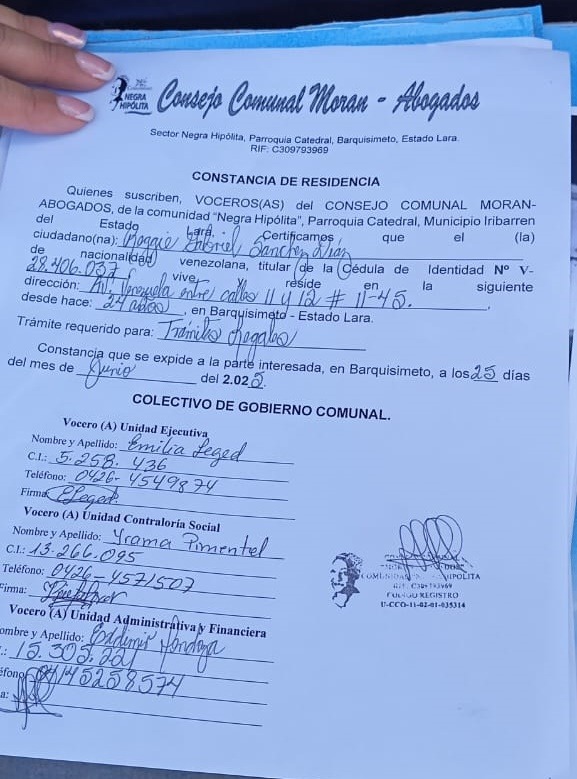 NEGRA
HIPÓLITA
Consejo Comunal Moran - Abogados
Sector Negra Hipólita, Parroquia Catedral, Barquisimeto, Estado Lara.
RIF: C309793969
CONSTANCIA DE RESIDENCIA
Quienes suscriben, VOCEROS(AS) del CONSEJO COMUNAL MORAN-
ABOGADOS, de la comunidad "Negra Hipólita", Parroquia Catedral, Municipio Iribarren
del Estado Lara. Certificamos que el (la)
ciudadano(na): Gabriel Sanchez
de nacionalidad venezolana, titular de la Cédula de Identidad Nº V-
28.406.037 vive, reside en la siguiente
dirección: Av. Venezuela entre calles 11 y 12 # 11-45.
desde hace: 24 años, en Barquisimeto - Estado Lara.
Trámite requerido para: Tramites
Constancia que se expide a la parte interesada, en Barquisimeto, a los 25 días
del mes de Junio del 2.02
COLECTIVO DE GOBIERNO COMUNAL.
Vocero (A) Unidad Ejecutiva
Nombre y Apellido: Emilia Leged
C.I.: 5.258.436
Teléfono: 0426-4549874
Firma:
Vocero (A) Unidad Contraloría Social
Nombre y Apellido: Yrama Pimentel
C.I.: 13.266.095
Teléfono: 0426-4571507
Firma:
Vocero (A) Unidad Administrativa y Financiera
ombre y Apellido:
.: 15.305.221
éfono 04145258574
a:
HIPOLITA
CODIGO REGISTRO
U-CCO-11-02-01-035314